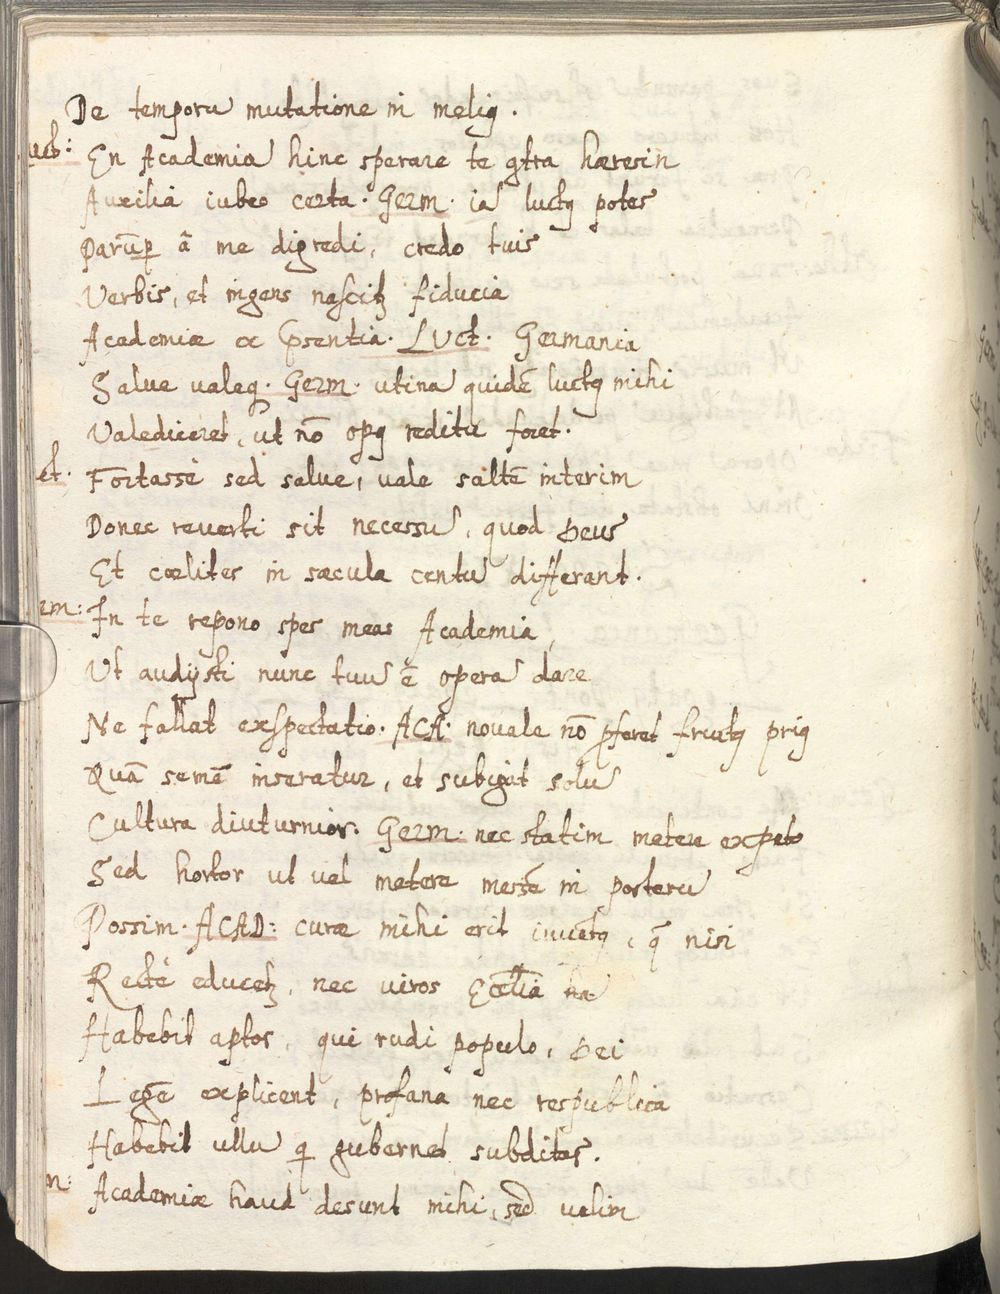 De temporū mutatione in melig.
uct: En Academiā hinc sperare te gtra hæresin
Auxilia iubeo certa. Germ. iā luctg potes
Parūp ā me digredi, credo tuis
Verbis, et ingens nascitʒ fiducia
Academiæ ex psentia. Luct. Germania
Salue ualeq. Germ. utinā quidē luctg mihi
Valediceret, ut nō opg reditu foret.
ct. Fortasse sed salue, uale saltē interim
Donec reuerti sit necessū, quod Deus
Et cœlites in sæcula centū differant.
rm: In te repono spes meas Academia,
Ut audijsti nunc tuū ē operā dare
Ne fallat exspectatio. ACA. nouale nō pferet fructg prig
Quā semē inseratur, et subigat solū
Cultura diuturnior. Germ. nec statim metere expeto
Sed hortor ut uel metere messē in posterū
Possim. ACAD: curæ mihi erit iuuētg, q̄ nisi
Rectè educetʒ, nec uiros Ecclīa
Habebit aptos, qui rudi populo, Dei
Legē explicent, profana nec respublica
Habebit ullū q gubernet subditos.
m: Academiæ haud desunt mihi, sed uelim